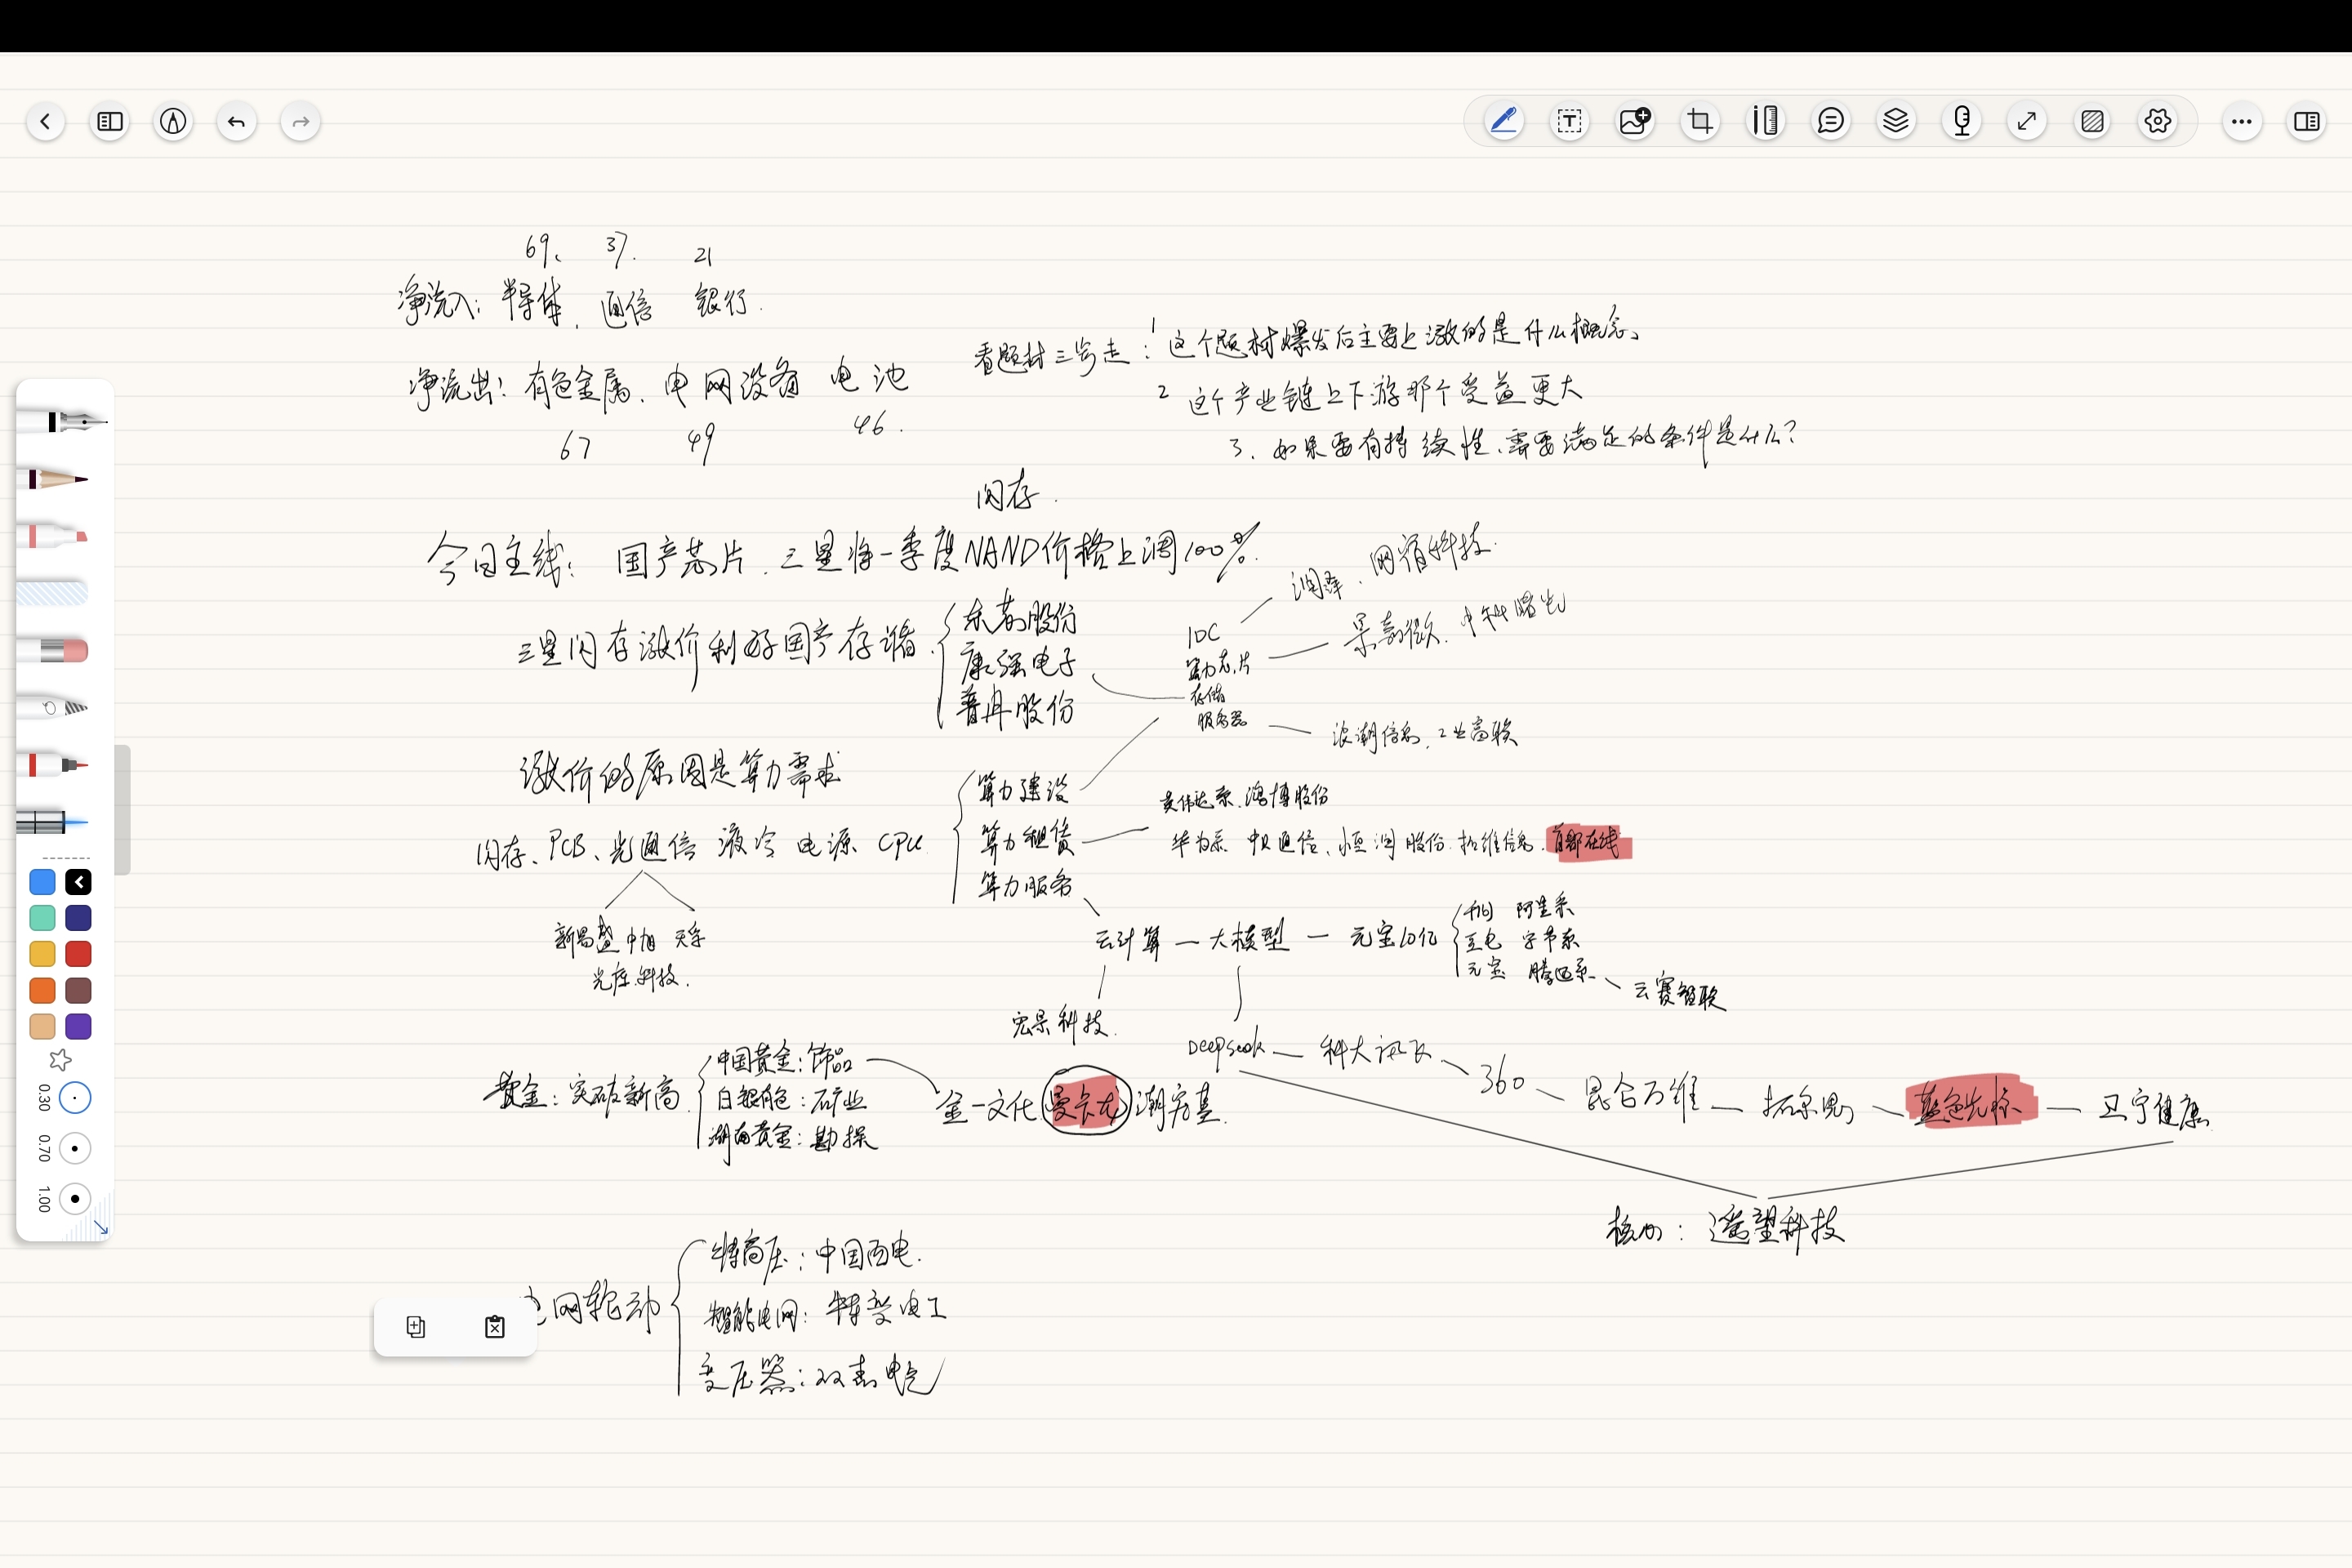 69、 37. 21
净流入: 半导体、通信 银行.
净流出: 有色金属、电网设备 电池
67 49 46.
看题材三步走: 1 这个题材爆发后主要上涨的是什么概念、
2 这个产业链上下游那个受益更大
3、如果要有持续性、需要满足的条件是什么?
闪存.
今日主线: 国产芯片、三星将一季度NAND价格上调100%.
三星闪存涨价利好国产存储.
东芯股份
康强电子
普冉股份
IDC
润泽、网宿科技.
算力芯片
景嘉微、中科曙光
存储
服务器
浪潮信息、工业富联
涨价的原因是算力需求
闪存、PCB、光通信 液冷 电源 CPU
新易盛 中旭 天孚
光库科技.
算力建设
算力租赁
算力服务
英伟达系、鸿博股份
华为系 中贝通信、恒润股份、拓维信息、首都在线
云计算 — 大模型 — 元宝10亿
千问 阿里系
豆包 字节系
元宝 腾迅系
云赛智联
宏景科技.
Deepseek — 科大讯飞 360 昆仑万维 — 拓尔思 蓝色光标 — 卫宁健康
核心: 遥望科技
黄金: 突破新高
中国黄金: 饰品
白银有色: 矿业
湖南黄金: 勘探
金一文化 曼卡龙 潮宏基.
网轮动
特高压: 中国西电.
智能电网: 特变电工
变压器: 双杰电气
0.30
0.70
1.00